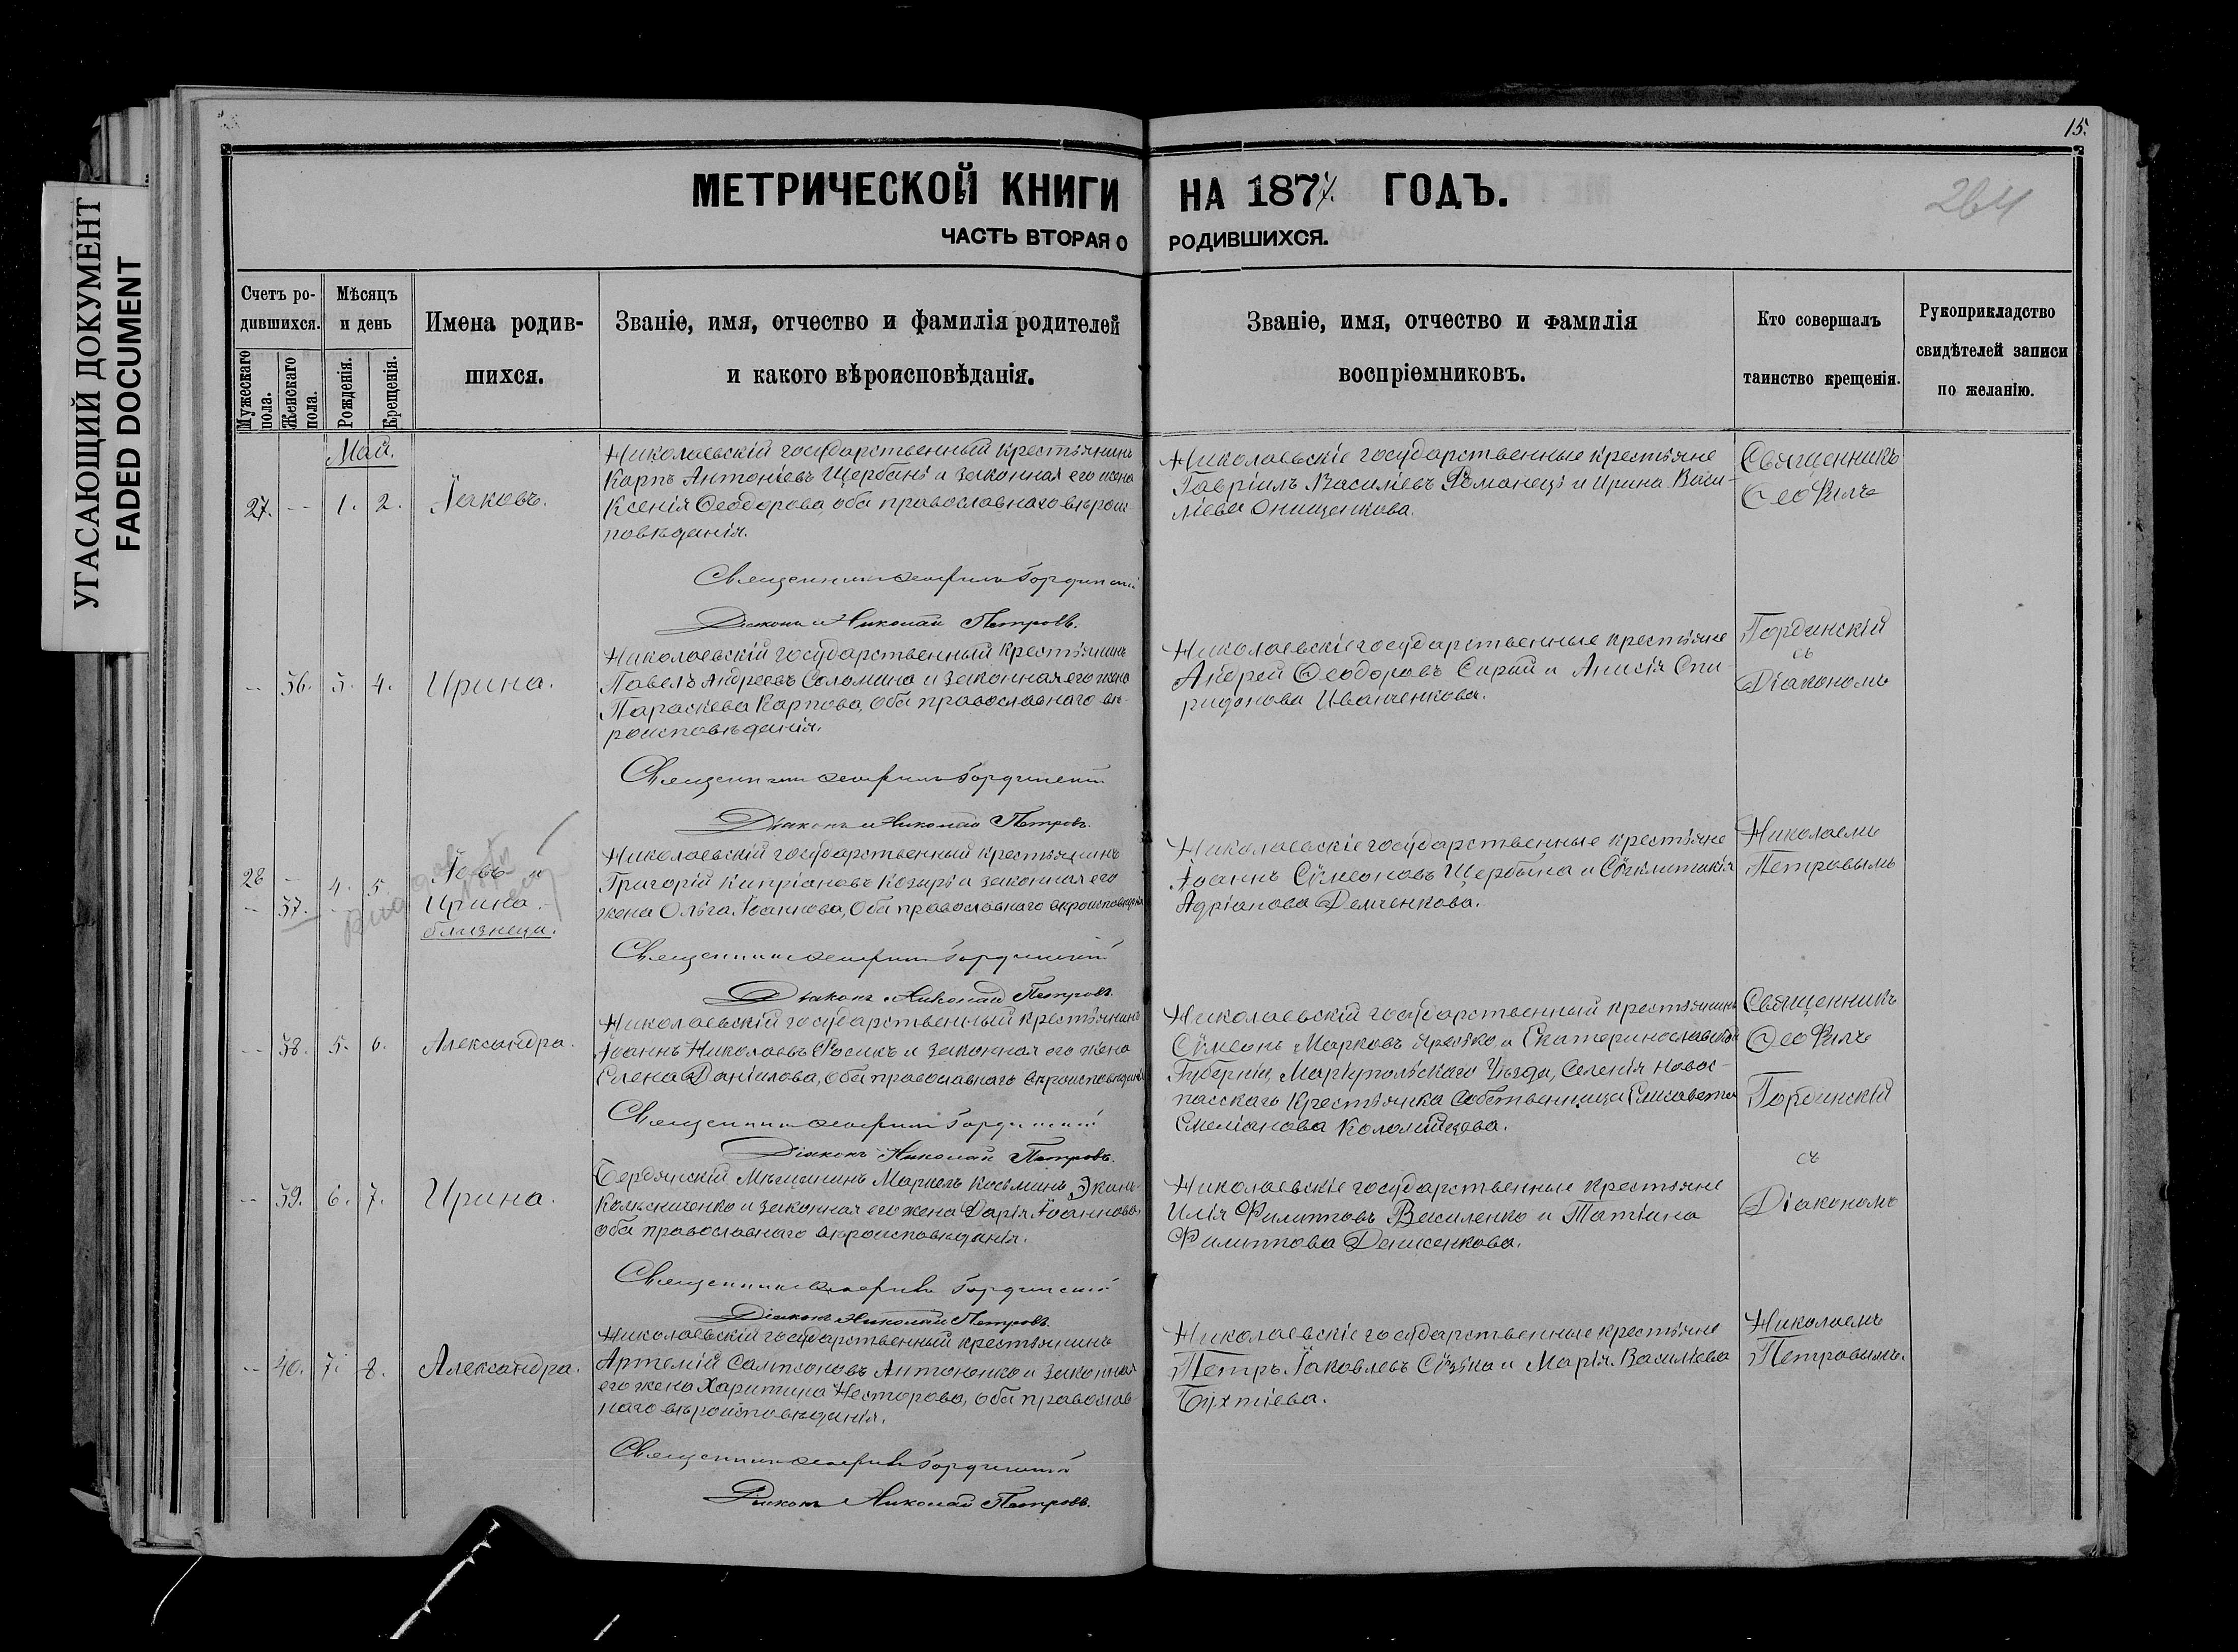 УГАСАЮЩИЙ ДОКУМЕНТ
FADED DOCUMENT
15.
264
МЕТРИЧЕСКОЙ КНИГИ НА 1877. ГОДЪ.
ЧАСТЬ ВТОРАЯ О РОДИВШИХСЯ.
Счетъ ро-
дившихся.
Мужескаго пола.
Женскаго пола.
Мѣсяцъ
и день
Рожденія.
Крещенія.
Имена родив-
шихся.
Званіе, имя, отчество и фамилія родителей
и какого вѣроисповѣданія.
Званіе, имя, отчество и фамилія
воспріемниковъ.
Кто совершалъ
таинство крещенія.
Рукоприкладство
свидѣтелей записи
по желанію.
Май.
27. -- 1. 2. Іаковъ.
Николаевскій государственный крестьянинъ
Карпъ Антоніевъ Щербань и законная его жена
Ксенія Ѳеодорова оба православнаго вѣроис-
повѣданія.
Священникъ Ѳеофилъ Гординскій
Діаконъ Николай Петровъ.
Николаевскіе государственные крестьяне
Гавріилъ Василіевъ Романецъ и Ирина Васи-
ліева Онищенкова.
Священникъ
Ѳеофилъ
-- 36. 3. 4. Ирина.
Николаевскій государственный крестьянинъ
Павелъ Андреевъ Соломина и законная его жена
Параскева Карпова, оба православнаго вѣ-
роисповѣданія.
Священникъ Ѳеофилъ Гординскій
Діаконъ Николай Петровъ.
Николаевскіе государственные крестьяне
Андрей Ѳеодоровъ Сирый и Анисія Спи-
ридонова Иванченкова.
Гординскій
съ
Діакономъ
28 -- 4. 5. Іовъ и
-- 37. Ирина
близнецы.
Николаевскій государственный крестьянинъ
Григорій Кипріановъ Козырь и законная его
жена Ольга Іоаннова, оба православнаго вѣроисповѣданія
Священникъ Ѳеофилъ Гординскій
Діаконъ Николай Петровъ.
Николаевскіе государственные крестьяне
Іоаннъ Сѵмеоновъ Щербина и Сѵнклитикія
Адріанова Демченкова.
Николаемъ
Петровымъ
-- 38. 5. 6. Александра.
Николаевскій государственный крестьянинъ
Іоаннъ Николаевъ Фосикъ и законная его жена
Елена Даніилова, оба православнаго вѣроисповѣданія
Священникъ Ѳеофилъ Гординскій
Діаконъ Николай Петровъ.
Николаевскій государственный крестьянинъ
Сѵмеонъ Марковъ и Екатеринославской
Губерніи, Маріупольскаго Уѣзда, Селенія Новос-
пасскаго Крестьянка Собственница Елисавета
Емеліанова Коломійцева.
Священникъ
Ѳеофилъ
Гординскій
-- 39. 6. 7. Ирина.
Бердянскій Мѣщанинъ Маркелъ Косьминъ
Колесниченко и законная его жена Дарія Іоаннова,
оба православнаго вѣроисповѣданія.
Священникъ Ѳеофилъ Гординскій
Діаконъ Николай Петровъ.
Николаевскіе государственные крестьяне
Илія Филипповъ Василенко и Татіана
Филиппова Денисенкова.
съ
Діакономъ
-- 40. 7. 8. Александра.
Николаевскій государственный крестьянинъ
Артемій Сампсоновъ Антоненко и законная
его жена Харитина Несторова, оба православ-
наго вѣроисповѣданія.
Священникъ Ѳеофилъ Гординскій
Діаконъ Николай Петровъ.
Николаевскіе государственные крестьяне
Петръ Іаковлевъ и Марія Василіева
Бухтіева.
Николаемъ
Петровымъ.